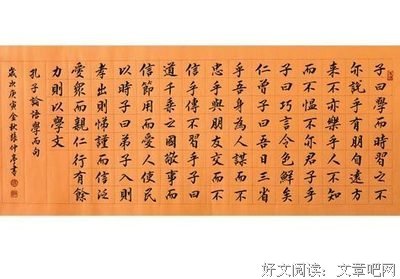 子曰學而時習之不
亦説乎有朋自遠方
來不亦樂乎人不知
而不慍不亦君子乎
子曰巧言令色鮮矣
仁曾子曰吾日三省
乎吾身為人謀而不
忠乎與朋友交而不
信乎傳不習乎子曰
道千乘之國敬事而
信節用而愛人使民
以時子曰弟子入則
孝出則悌謹而信泛
愛眾而親仁行有餘
力則以學文
孔子論語學而句
歲次庚寅金秋張仲亭書
好文阅读：文章吧网